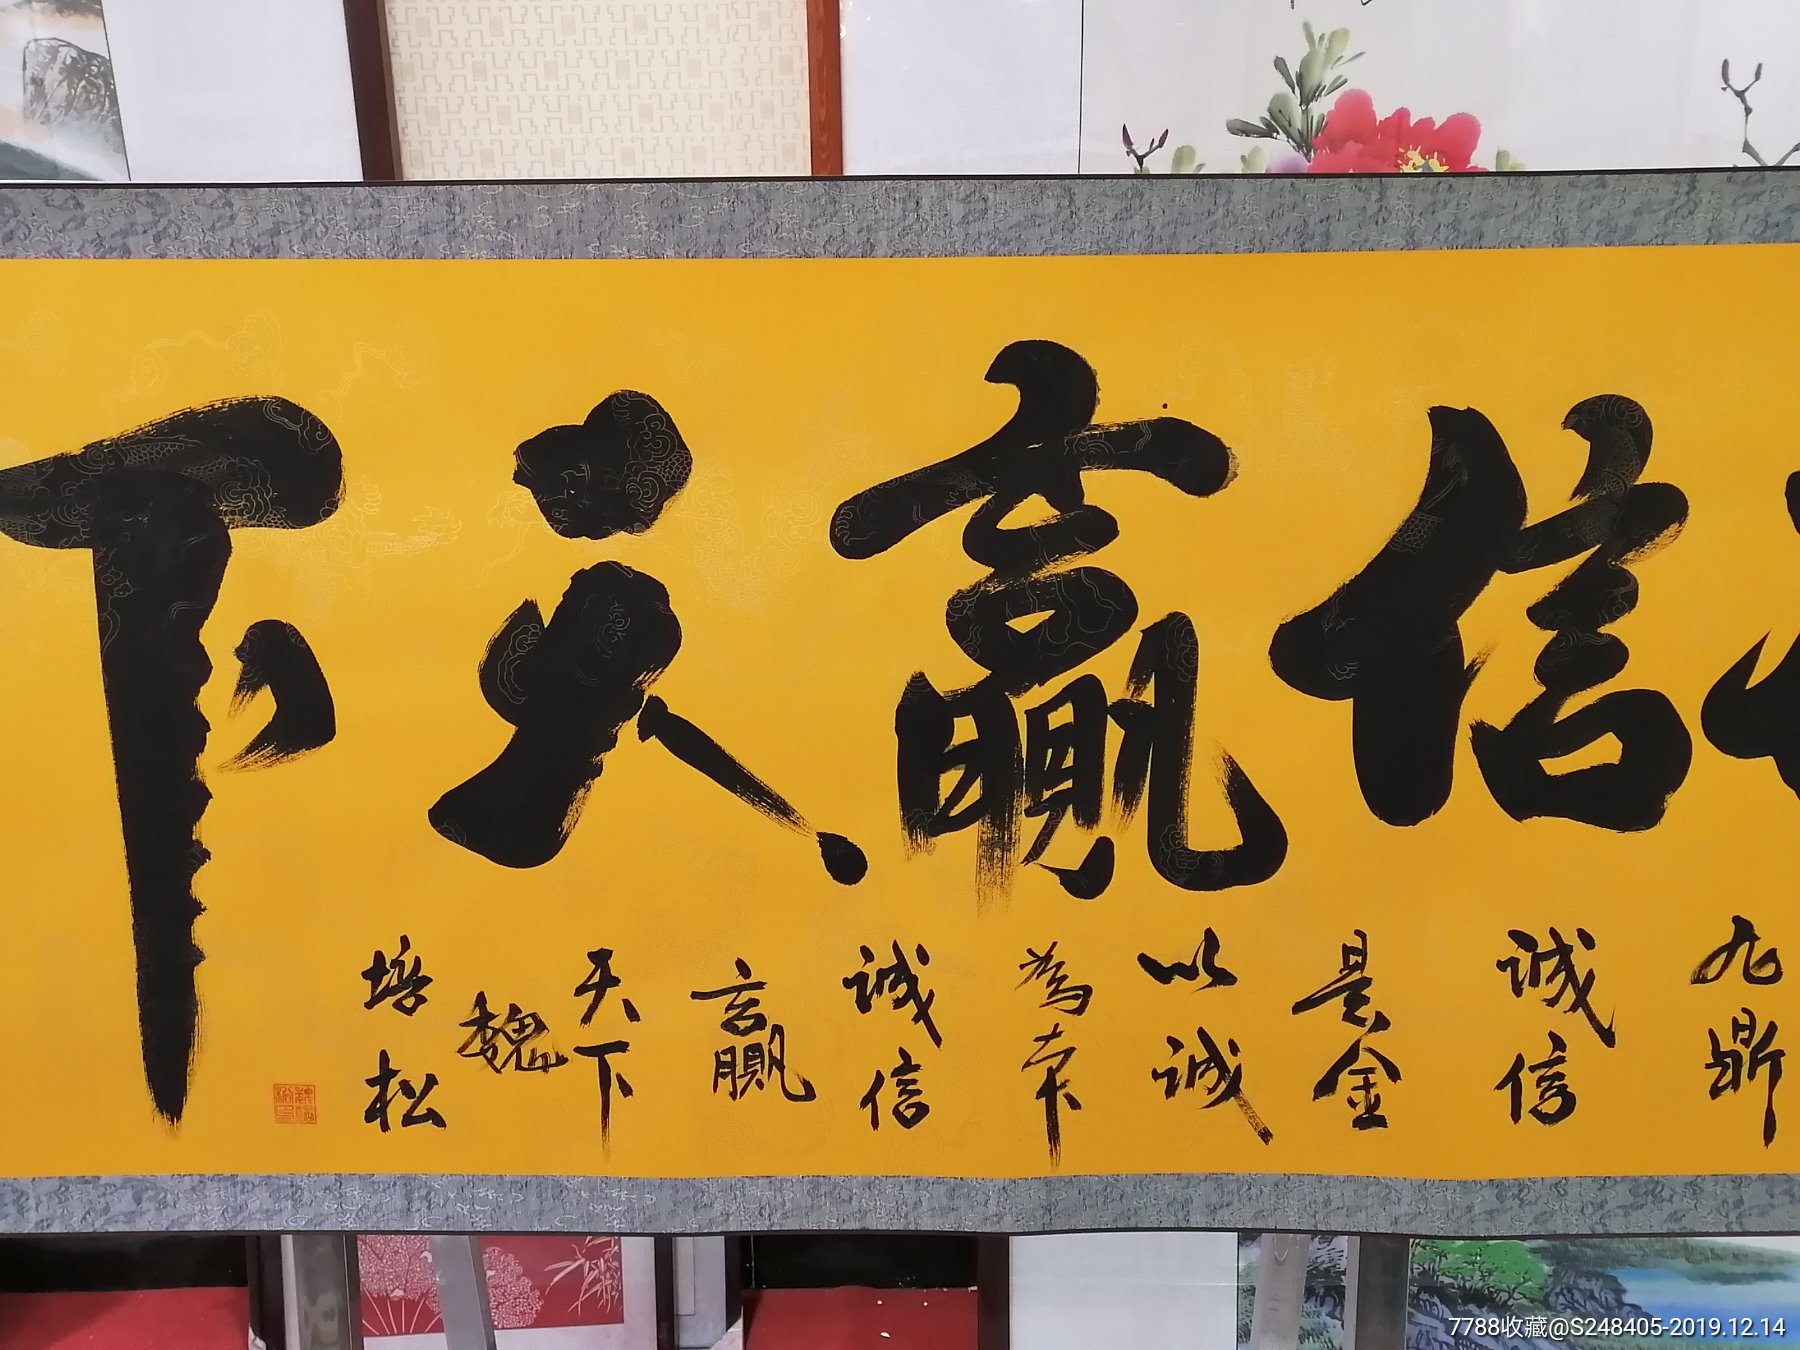 信赢天下
九鼎
诚信
是金
以诚
为本
诚信
赢
天下
魏
培松
7788收藏@S248405-2019.12.14